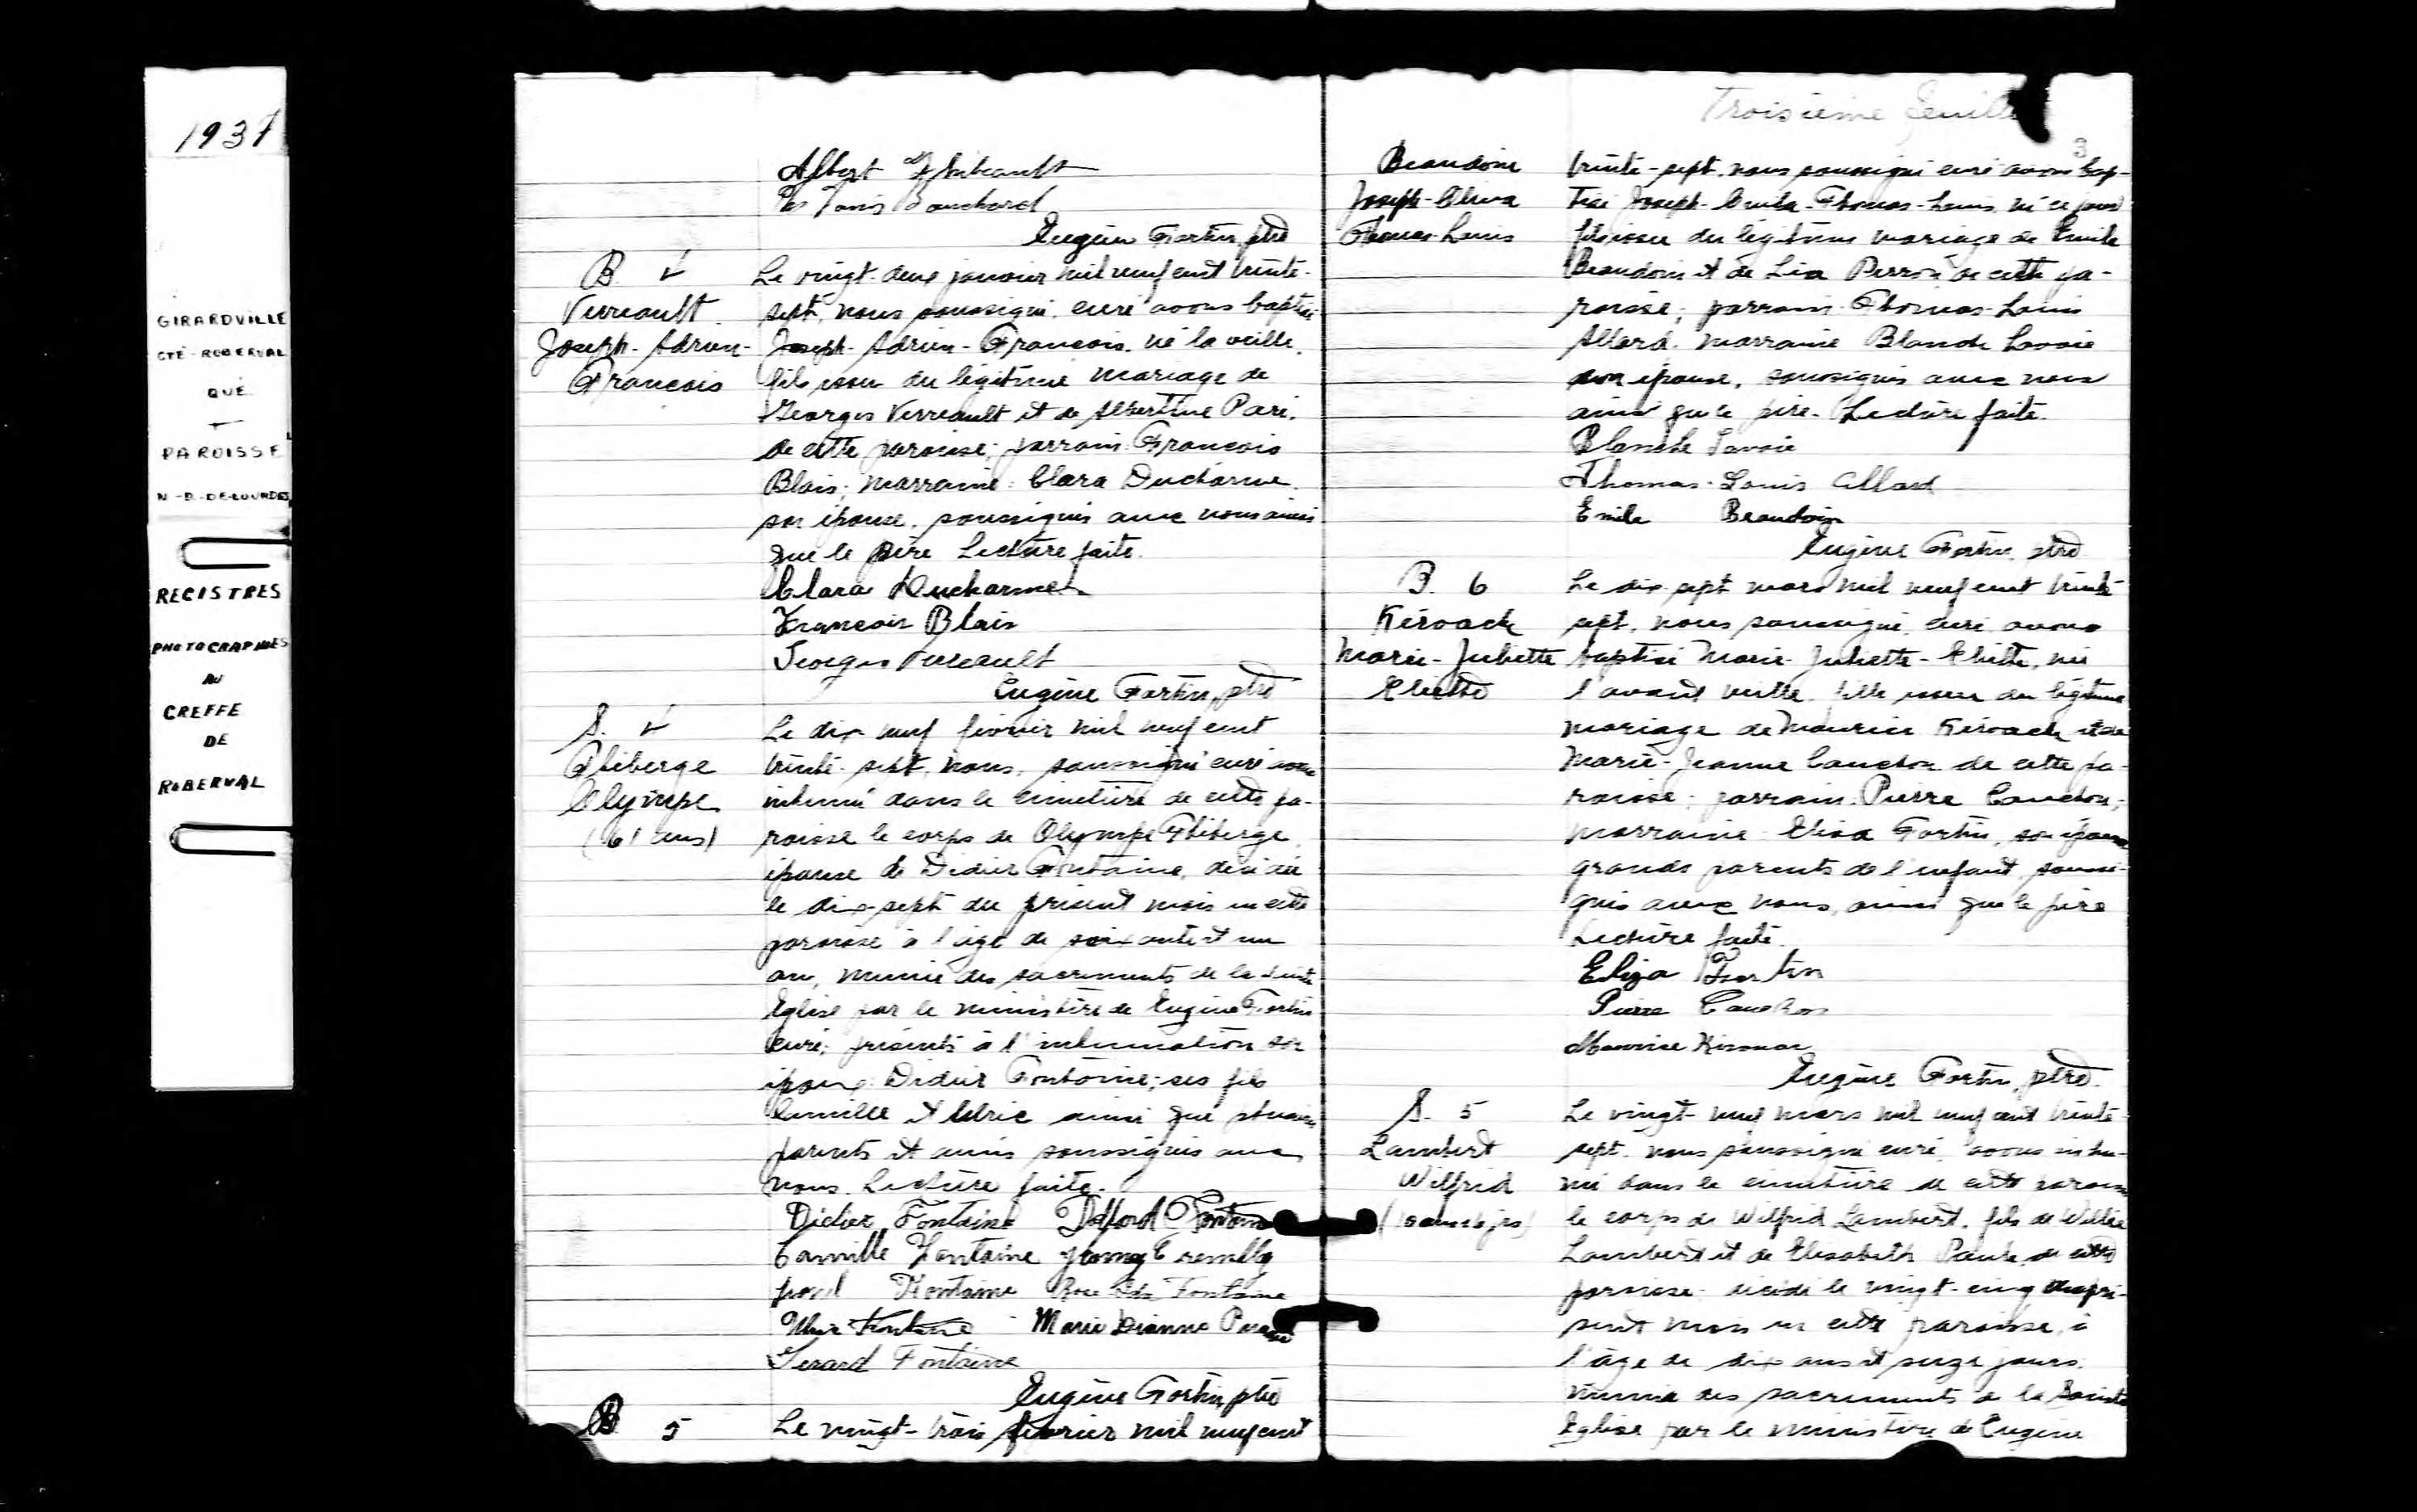 1937
GIRARDVILLE
CTÉ-ROBERVAL
QUÉ.
PAROISSE
N-D-DE-LOURDES
REGISTRES
PHOTOGRAPHIÉS
AU
GREFFE
DE
ROBERVAL
Albert Thibeault
Bouchard
Eugène Fortin ptre
B. 4
Verreault
Joseph-Adrien-
François
Le vingt-deux janvier mil neuf cent trente-
sept, nous soussigné, curé avons baptisé
Joseph-Adrien-François, né la veille,
fils issu du légitime mariage de
Georges Verreault et de Albertine Paré,
de cette paroisse; parrain François
Blais; marraine: Clara Ducharme,
son épouse, soussignés avec nous ainsi
que le père Lecture faite.
Clara Ducharme
François Blais
Georges Verreault
Eugène Fortin, ptre
S. 4
Thiberge
Olympe
(61 ans)
Le dix neuf février mil neuf cent
trente-sept, nous, soussigné curé avons
inhumé dans le cimetière de cette pa-
roisse le corps de Olympe Thiberge,
épouse de Didier Fontaine, décédée
le dix-sept du présent mois en cette
paroisse à l'âge de soixante et un
an, munie des sacrements de la Sainte
Eglise par le ministère de Eugène Fortin
curé; présents à l'inhumation son
époux Didier Fontaine; ses fils
Camille et Ulric ainsi que plusieurs
parents et amis soussignés avec
nous. Lecture faite.
Didier Fontaine Fontaine
Camille Fontaine Tremblay
Fontaine Rose Fontaine
Fontaine Marie Dianna
Gerard Fontaine
Eugène Fortin ptre
B. 5
Le vingt-trois février mil neuf cent
Troisième feuille
3
Beaudoin
Joseph-
Thomas-Louis
trente-sept, nous soussigné curé avons bap-
tisé Joseph- -Thomas-Louis, né ce jour
fils issu du légitime mariage de Emile
Beaudoin et de Léa Perron de cette pa-
roisse; parrain Thomas-Louis
Allard, marraine Blanche Lavoie
son épouse, soussignés avec nous
ainsi que le père. Lecture faite.
Blanche Lavoie
Thomas-Louis Allard
Emile Beaudoin
Eugène Fortin, ptre
B. 6
Kéroack
Marie-Juliette
Eliette
Le dix sept mars mil neuf cent trente-
sept, nous soussigné, curé avons
baptisé Marie-Juliette-Eliette, née
l'avant veille, fille issue du légitime
mariage de Maurice Kéroack et de
Marie-Jeanne Cauchon de cette pa-
roisse; parrain: Pierre Cauchon;
marraine Elisa Fortin, son épouse
grands parents de l'enfant, soussi-
gnés avec nous, ainsi que le père
Lecture faite.
Eliza Fortin
Pierre Cauchon
Maurice
Eugène Fortin, ptre.
S. 5
Lambert
Wilfrid
(10 ans 16 jrs)
Le vingt-neuf mars mil neuf cent trente-
sept, nous soussigné curé, avons inhu-
mé dans le cimetière de cette paroisse
le corps de Wilfrid Lambert, fils de Willie
Lambert et de Elisabeth de cette
paroisse; décédé le vingt-cinq du pré-
sent mois en cette paroisse, à
l'âge de dix ans et seize jours,
munie des sacrements de la Sainte
Eglise par le ministère de Eugène